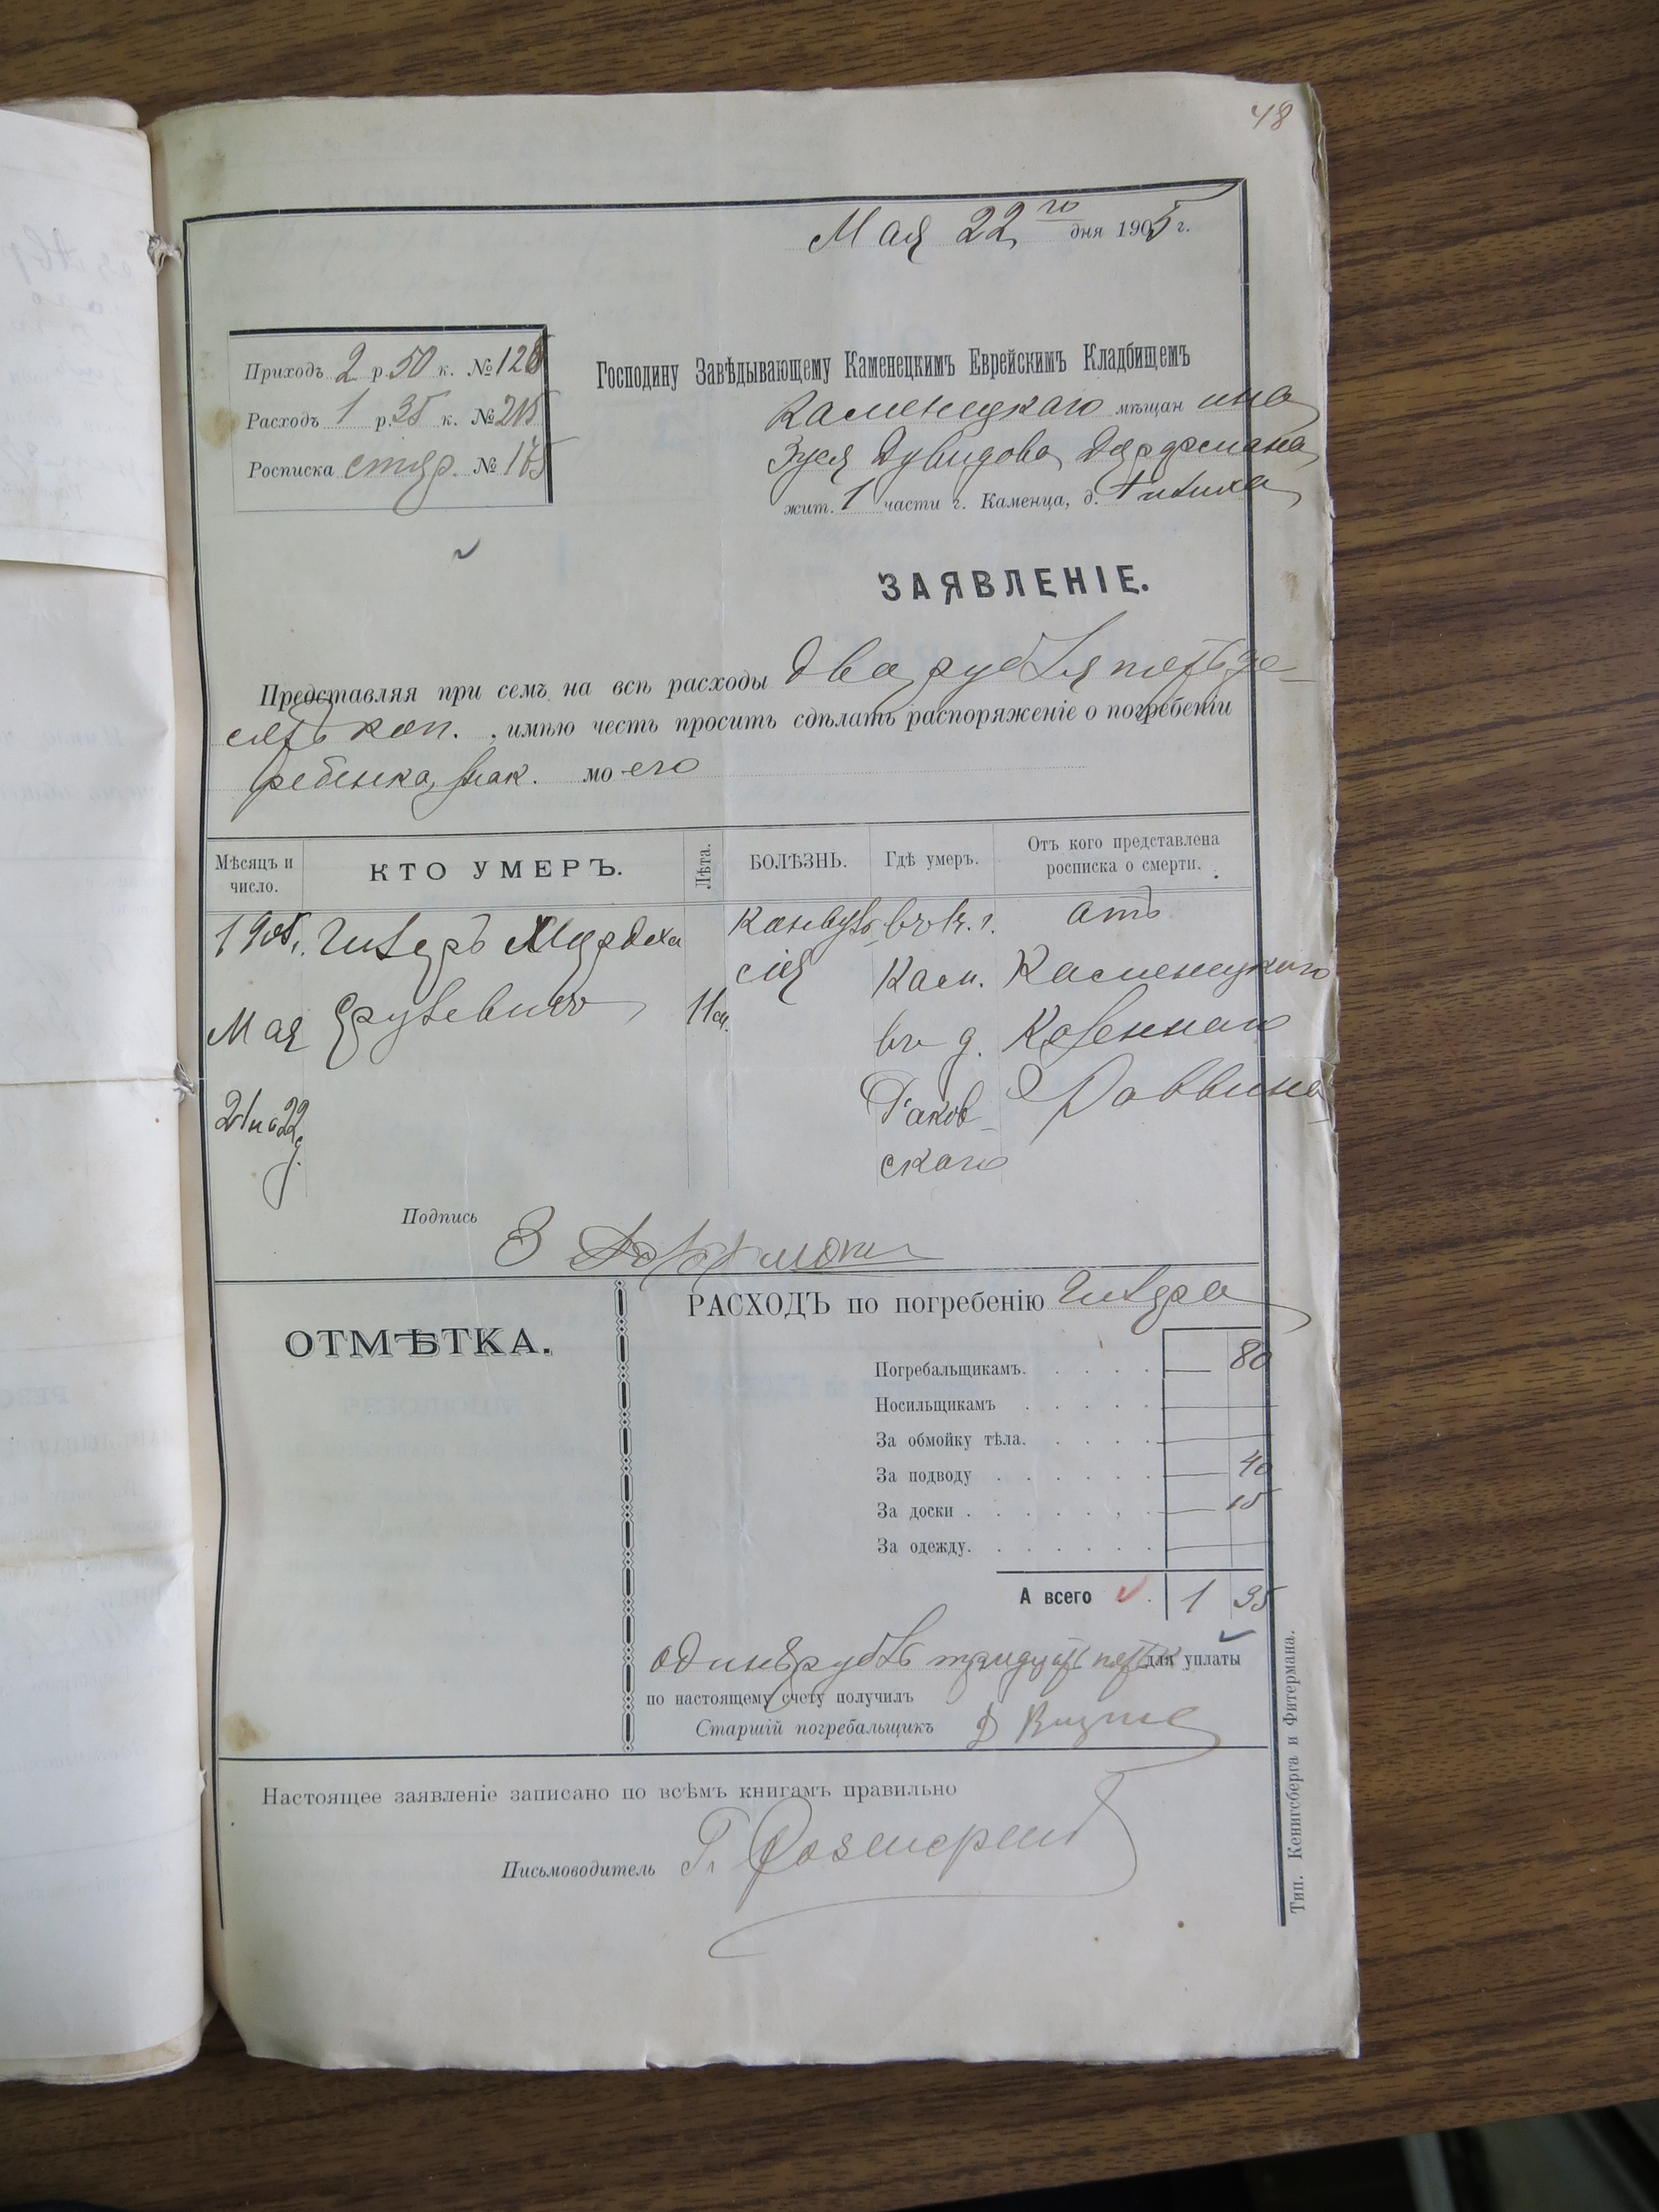 48
Мая 22 го дня 1905 г.
Приходъ 2 р. 50 к. № 126
Расходъ 1 р. 35 к. № 215
Росписка стар. № 175
Господину Завѣдывающему Каменецкимъ Еврейскимъ Кладбищемъ
Каменецкаго мѣщан ина
Зуся Дувидова
жит. 1 части г. Каменца, д.
ЗАЯВЛЕНІЕ.
Представляя при семъ на всѣ расходы два рубля пятьде-
сятъ коп. , имѣю честь просить сдѣлать распоряженіе о погребеніи
ребенка знак. мо его
Мѣсяцъ и число.
КТО УМЕРЪ.
Лѣта.
БОЛѢЗНЬ.
Гдѣ умеръ.
Отъ кого представлена росписка о смерти.
1905 г. Мордха Конвуль въ к. г. отъ
сія Кам. Каменецкаго
Мая 11 м. въ д. Казеннаго
21 на 22 Раков- Раввина
скаго
Подпись З
ОТМѢТКА.
РАСХОДЪ по погребенію
Погребальщикамъ. — 80
Носильщикамъ
За обмойку тѣла.
За подводу — 40
За доски — 15
За одежду.
А всего 1 35
одинъ рубль тридцать пять к для уплаты
по настоящему счету получилъ
Старшій погребальщикъ Д
Настоящее заявленіе записано по всѣмъ книгамъ правильно
Письмоводитель Г.
Тип. Кенигсберга и Фитермана.